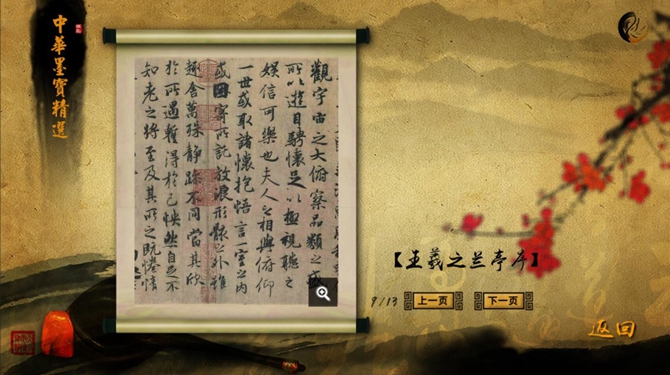 中華墨寶精選
觀宇宙之大俯察品類之盛
所以遊目騁懷足以極視聽之
娛信可樂也夫人之相與俯仰
一世或取諸懷抱悟言一室之內
或因寄所託放浪形骸之外雖
趣舍萬殊靜躁不同當其欣
於所遇暫得於己怏然自足不
知老之將至及其所之既惓情
【王羲之兰亭序】
9/13
上一页
下一页
返回